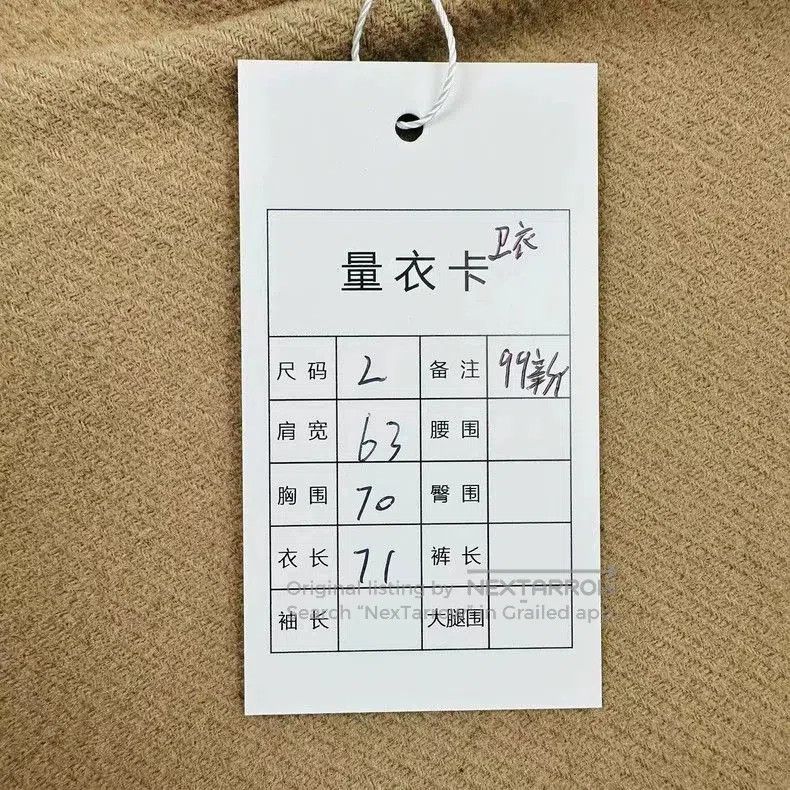 量衣卡 卫衣
尺码 L 备注 99新
肩宽 63 腰围
胸围 70 臀围
衣长 71 裤长
Original listing by NEXTARROW
Search “NexTarrow” in Grailed app
袖长 大腿围